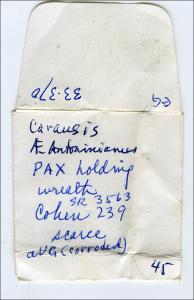 33-37a
Carausis
Æ Antoninianus
PAX holding
wreath
SR 3563
Cohen 239
scarce
aVG (corroded)
45